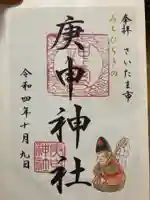 奉拝 さいたま市
みちひらきの
庚申神社
令和四年十月九日